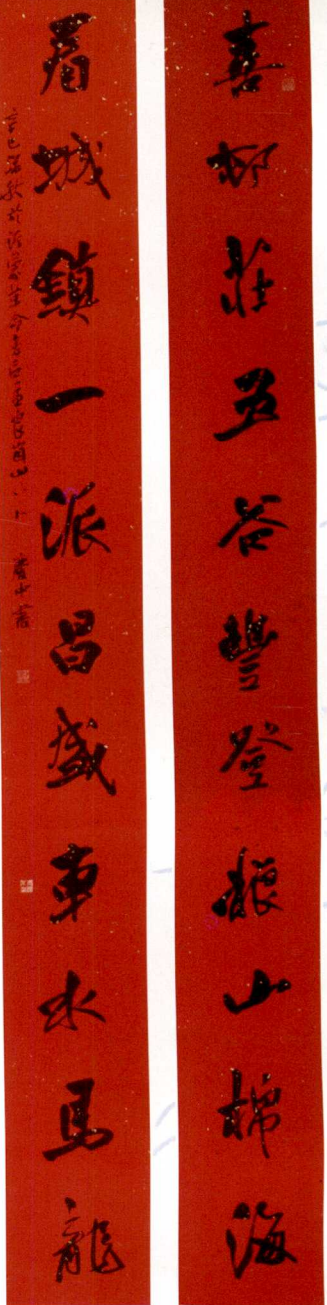 喜邨莊五谷豐登粮山棉海
看城鎮一派昌盛車水馬龍